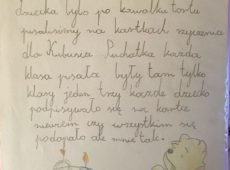 dziecka było po kawałku tortu
pisaliśmy na kartkach życzenia
dla Kubusia Puchatka każda
klasa pisała były tam tylko
klasy jeden trzy każde dziecko
podpisywało się na kartce
niewiem czy wszystkim się
podobało ale mnie tak.